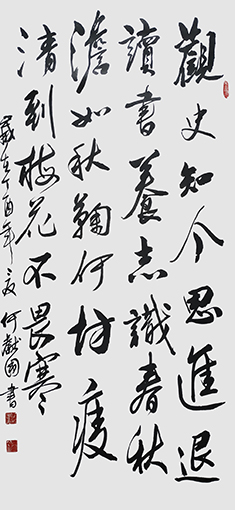 觀史知今思進退
讀書養志識春秋
澹如秋鞠何妨瘦
清到梅花不畏寒
歲在丁酉年之夏何獻國書